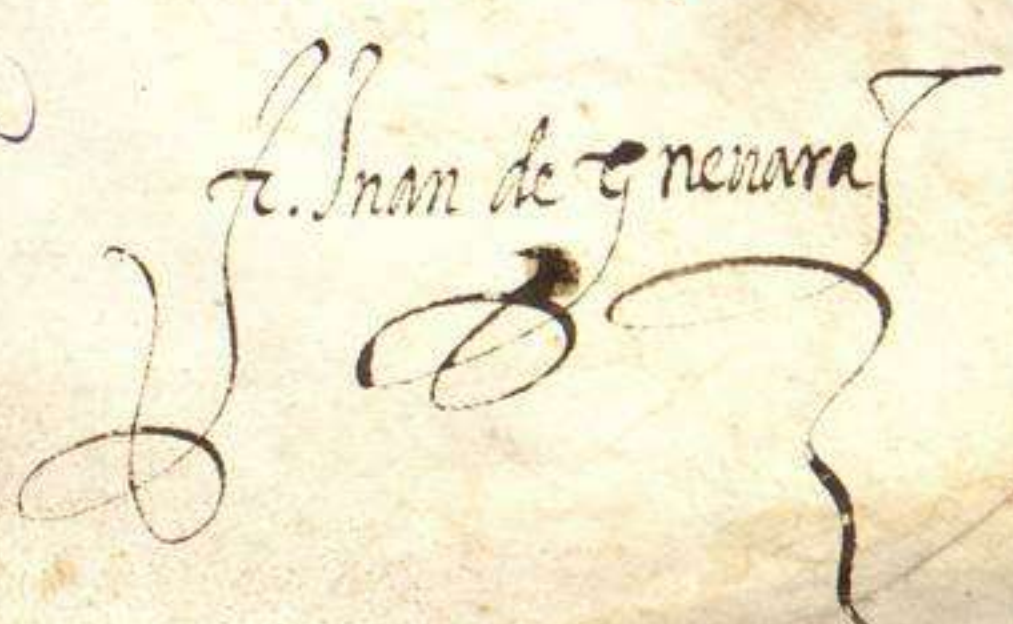 fr. Juan de Gueuara